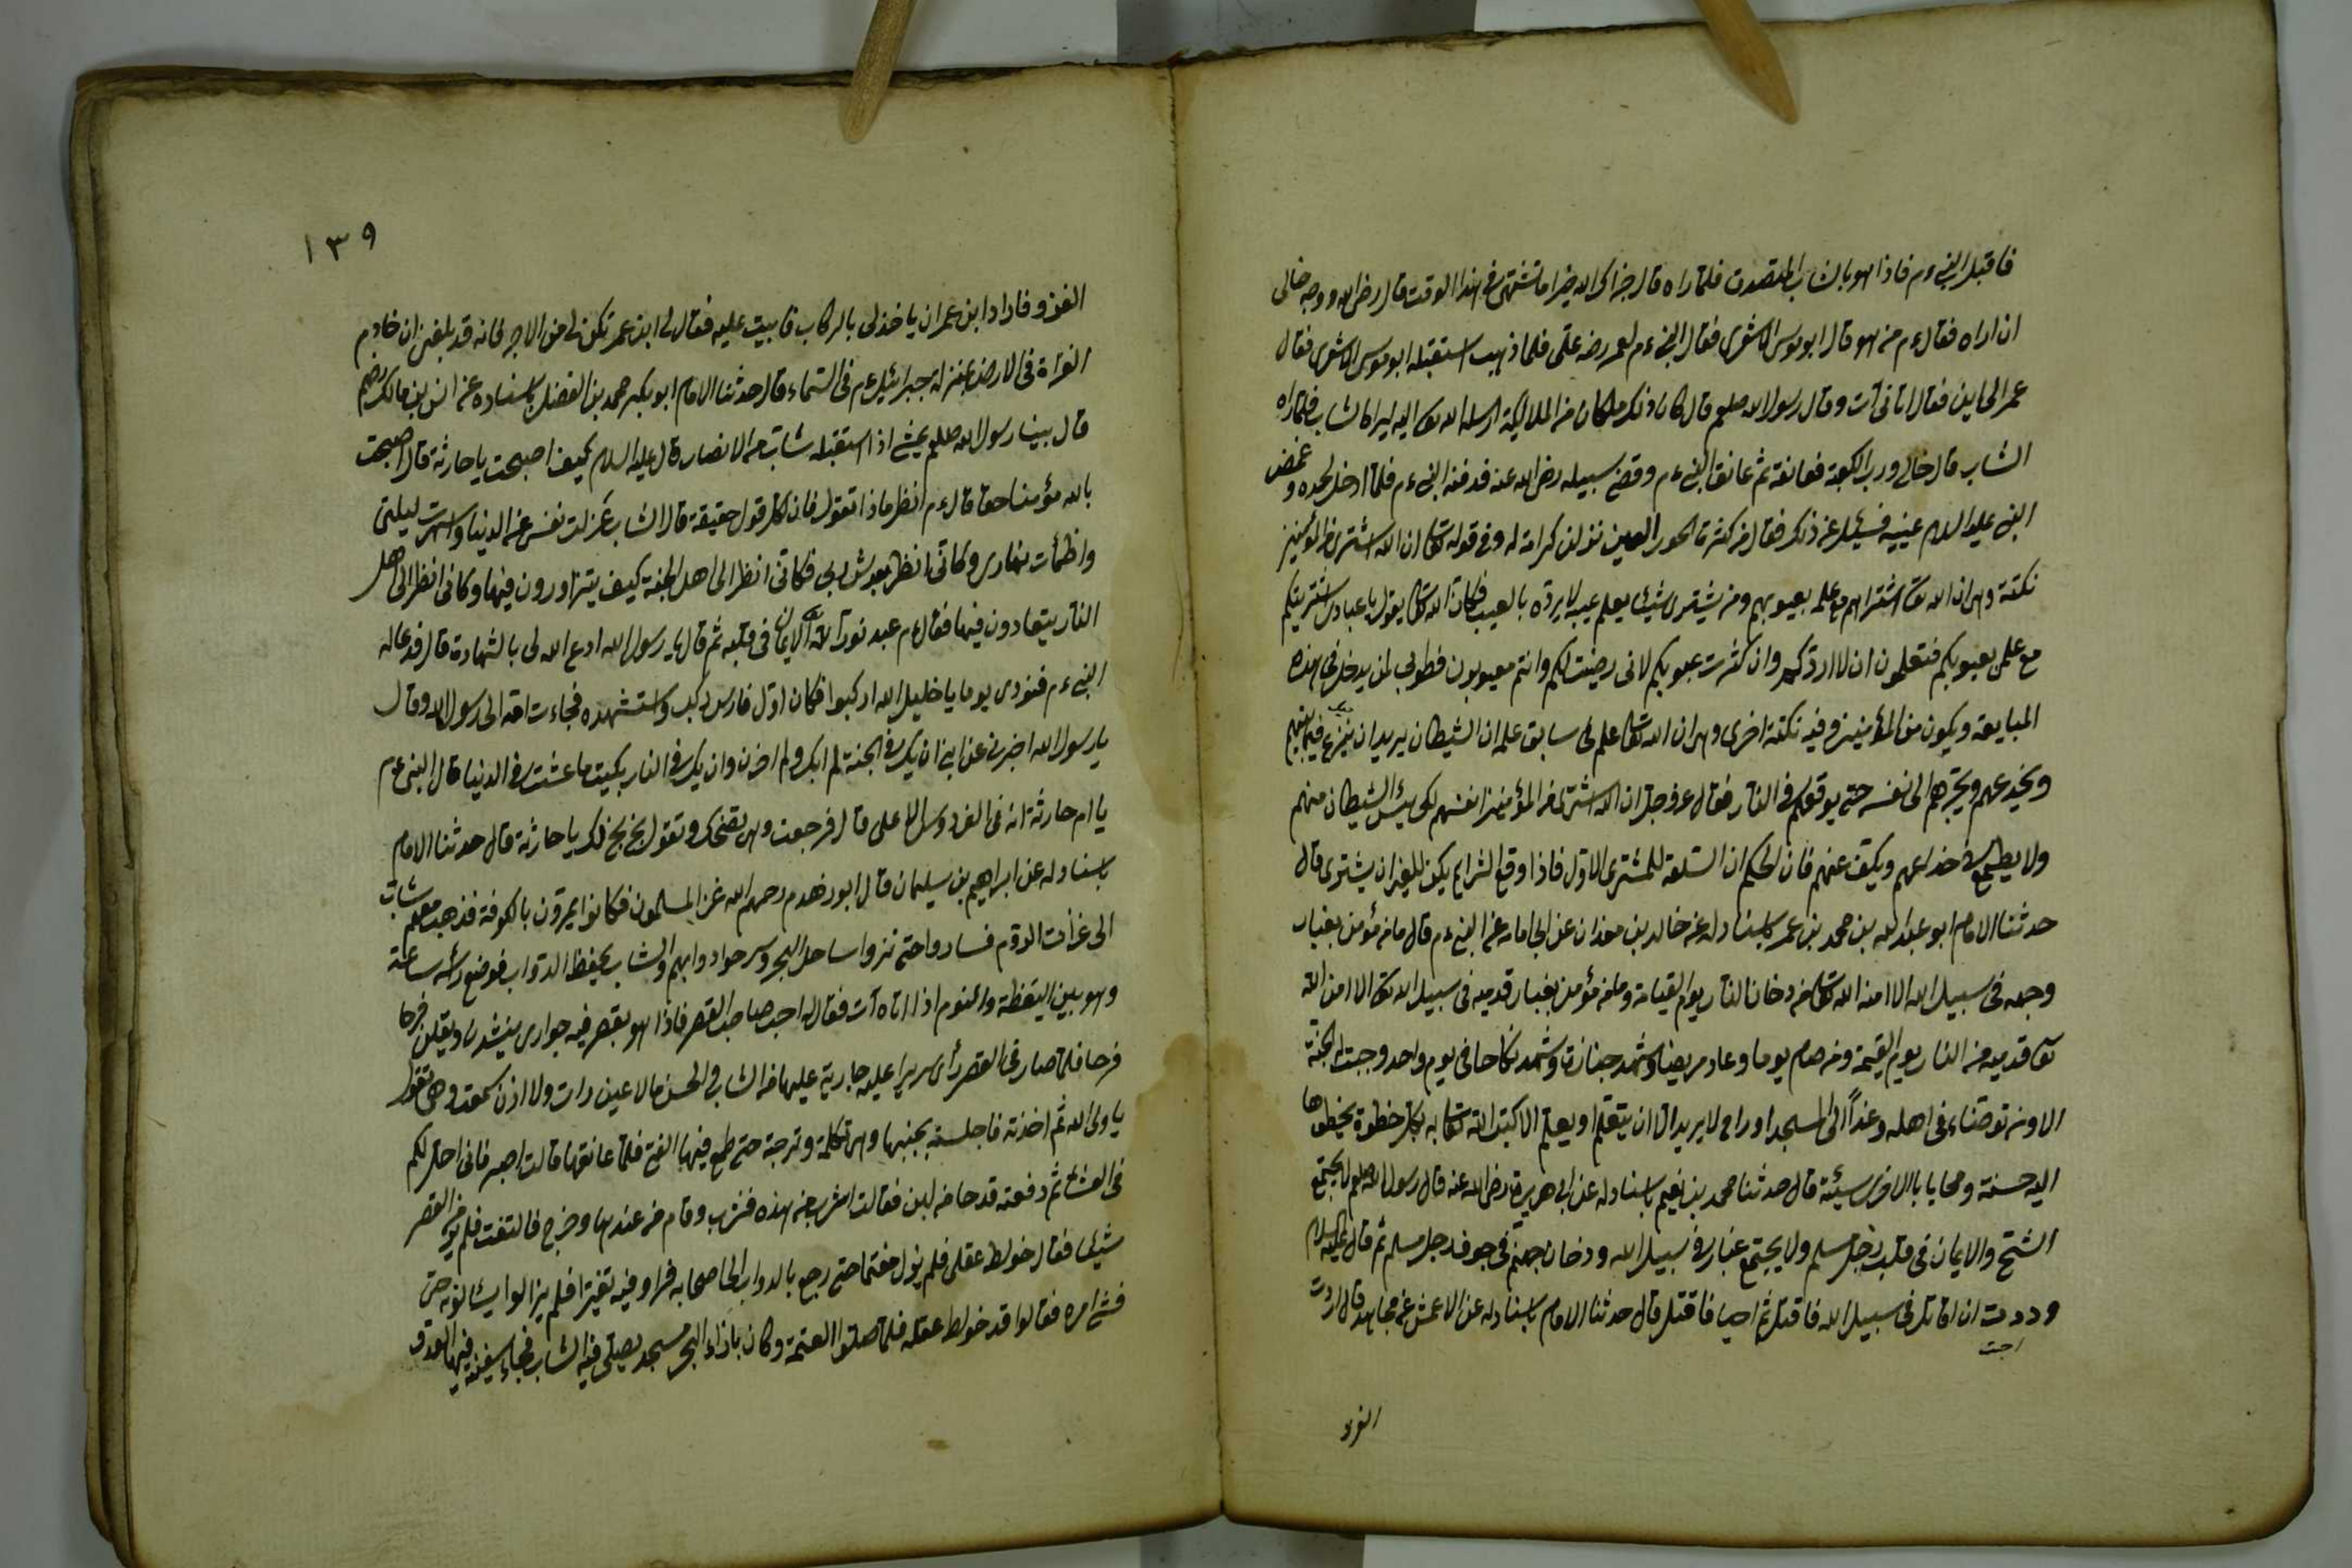 فاقبل النبى ءم فاذا هو بالشاب المتصدق فلما راه قال جزاك الله خيرا ما تشتهى فى هذا الوقت قال رضى الله ووجه خالى
ان اراه فقال ءم من هو قال ابو موسى الاشعرى فقال النبى ءم لعمر رضه على فلما ذهب استقبله ابو موسى الاشعرى فقال
عمر الى اين فقال اتانى آت وقال رسول الله صلعم قال كان ذلك ملكا من الملائكة ارسله الله تعا اليه ليرا الشاب فلما راه
الشاب قال خالى ورب الكعبة فعانقه ثم عانق النبى ءم وقضى سبيله رضى الله عنه فدفنه النبى ءم فلما ادخل لحده وغمض
النبى عليه السلام عينيه فسئل عن ذلك فقال من كثرة الحور العين نزلن كرامة له وفى قوله تعا ان الله اشترى من المؤمنين
نكتة وهى ان الله تعا اشتراهم مع علمه بعيوبهم ومن يشترى شيئا يعلم عيبه لا يرده بالعيب فكان الله تعا يقول يا عبادى اشتريتكم
مع علمى بعيوبكم فتعلمون ان لا اردكم وان كثرت عيوبكم لانى رضيت لكم وانتم معيوبون فطوبى لمن يدخل فى هذه
المبايعة ويكون من المؤمنين وفيه نكتة اخرى وهى ان الله تعا علم فى سابق علمه ان الشيطان يريد ان ينزغ فيما بينهم
ويخدعهم ويجرهم الى نفسه حتى يوقعهم فى النار فقال عز وجل ان الله اشترى من المؤمنين انفسهم لكى ييئس الشيطان منهم
ولا يطمع فى خداعهم ويكف عنهم فان الحكم ان السلعة للمشترى الاول فاذا وقع الشرا لم يكن للغير ان يشترى قال
حدثنا الامام ابو عبد الله بن محمد بن عمر باسناد له عن خالد بن معدان عن ابى امامه عن النبى ءم قال ما من مؤمن يغبار
وجهه فى سبيل الله الا امنه الله تعا من دخان النار يوم القيامة وما من مؤمن يغبار قدميه فى سبيل الله تعا الا امن الله
تعا قدميه من النار يوم القيمة ومن صام يوما وعاد مريضا وشهد جنازة وشهد نكاحا فى يوم واحد وجبت له الجنة
الا ومن توضاء فى اهله وغدا الى المسجد او راح لا يريد الا ان يتعلم او يعلم الا كتب الله تعا به بكل خطوة يخطوها
اليه حسنة ومحايا بالاخرى سيئة قال حدثنا محمد بن نعيم باسناد له عن ابى هريرة رضى الله عنه قال رسول الله صلعم لا يجتمع
الشح والايمان فى قلب رجل مسلم ولا يجتمع غبار فى سبيل الله ودخان جهنم فى جوف رجل مسلم ثم قال عليه السلام
وددت ان اقاتل فى سبيل الله فاقتل ثم احيا فاقتل قال حدثنا الامام باسناد له عن الاعمش عن مجاهد قال اردت
الغزو
١٣٩
الغزو فاراد ابن عمر ان ياخذ لى بالركاب فابيت عليه فقال لى ابن عمر تكره لى من الاجر فانه قد بلغنى ان خادم
الغزاة فى الارض بمنزلة جبرائيل ءم فى السماء قال حدثنا الامام ابو بكر محمد بن الفضل باسناده عن انس بن مالك رضهم
قال بينا رسول الله صلعم يمشى اذ استقبله شاب من الانصار قال عليه السلام كيف اصبحت يا حارثة قال اصبحت
بالله مؤمنا حقا قال ءم انظر ماذا تقول فان لكل قول حقيقة قال الشاب عزلت نفسى عن الدنيا واسهرت ليلتى
واظمأت نهارى وكانى انظر بعرش ربى فكانى انظر الى اهل الجنة كيف يتزاورون فيها وكانى انظر الى اهل
النار يتعادون فيها فقال ءم عبد نور الله الايمان فى قلبه ثم قال يا رسول الله ادع الله لى بالشهادة قال فدعا له
النبى ءم فنودى يوما يا خليل الله اركبوا فكان اول فارس ركب واستشهده فجاءت امه الى رسول الله وقال
يا رسول الله اخبرنى عن ابنى ان يك فى الجنة لم ابك ولم احزن وان يك فى النار بكيت ما عشت فى الدنيا قال النبى ءم
يا ام حارثة انه فى الفردوس الاعلى قال فرجعت وهى تضحك وتقول بخ بخ لك يا حارثة قال حدثنا الامام
باسناد له عن ابراهيم بن سليمان قال ابو زهدم رحمهم الله غزا المسلمون فكانوا يمرون بالكوفة فذهب معهم شاب
الى غزات الروم فساروا حتى نزلوا ساحل البحر وسرحوا دوابهم والشاب يحفظ الدواب فوضع رأسه ساعة
وهو بين اليقظة والنوم اذا اتاه آت فقال له اجب صاحب القصر فاذا هو بقصر فيه جوارى ينشدن ويقلن فرحا
فرحا فلما صار فى القصر رأى سريرا عليه جارية عليها من الشاب فى الحسن ما لا عين رات ولا اذن سمعت وهى تقول
يا ولى الله ثم اخذته فاجلسته بجنبها وهى تكلمه وترحبه حتى طمع فيها الفتى فلما عانقها قالت اصبر فانى احل لكم
فى العشا ثم دفعته قدحا من لبن فقالت اشرب من هذه فشرب وقام من عندها وخرج فالتفت فلم ير من القصر
شيئا فقال خولط عقلى فلم يزل مغتما حتى رجع بالدواب الى اصحابه فراو فيه تغيرا فلم يزالوا يسئالونه حتى
فشى امره فقالوا قد خولط عقله فلما صلوا العتمة وكان بازاء البحر مسجد يصلى فيه الشاب فجاء سفينة فيها العدو